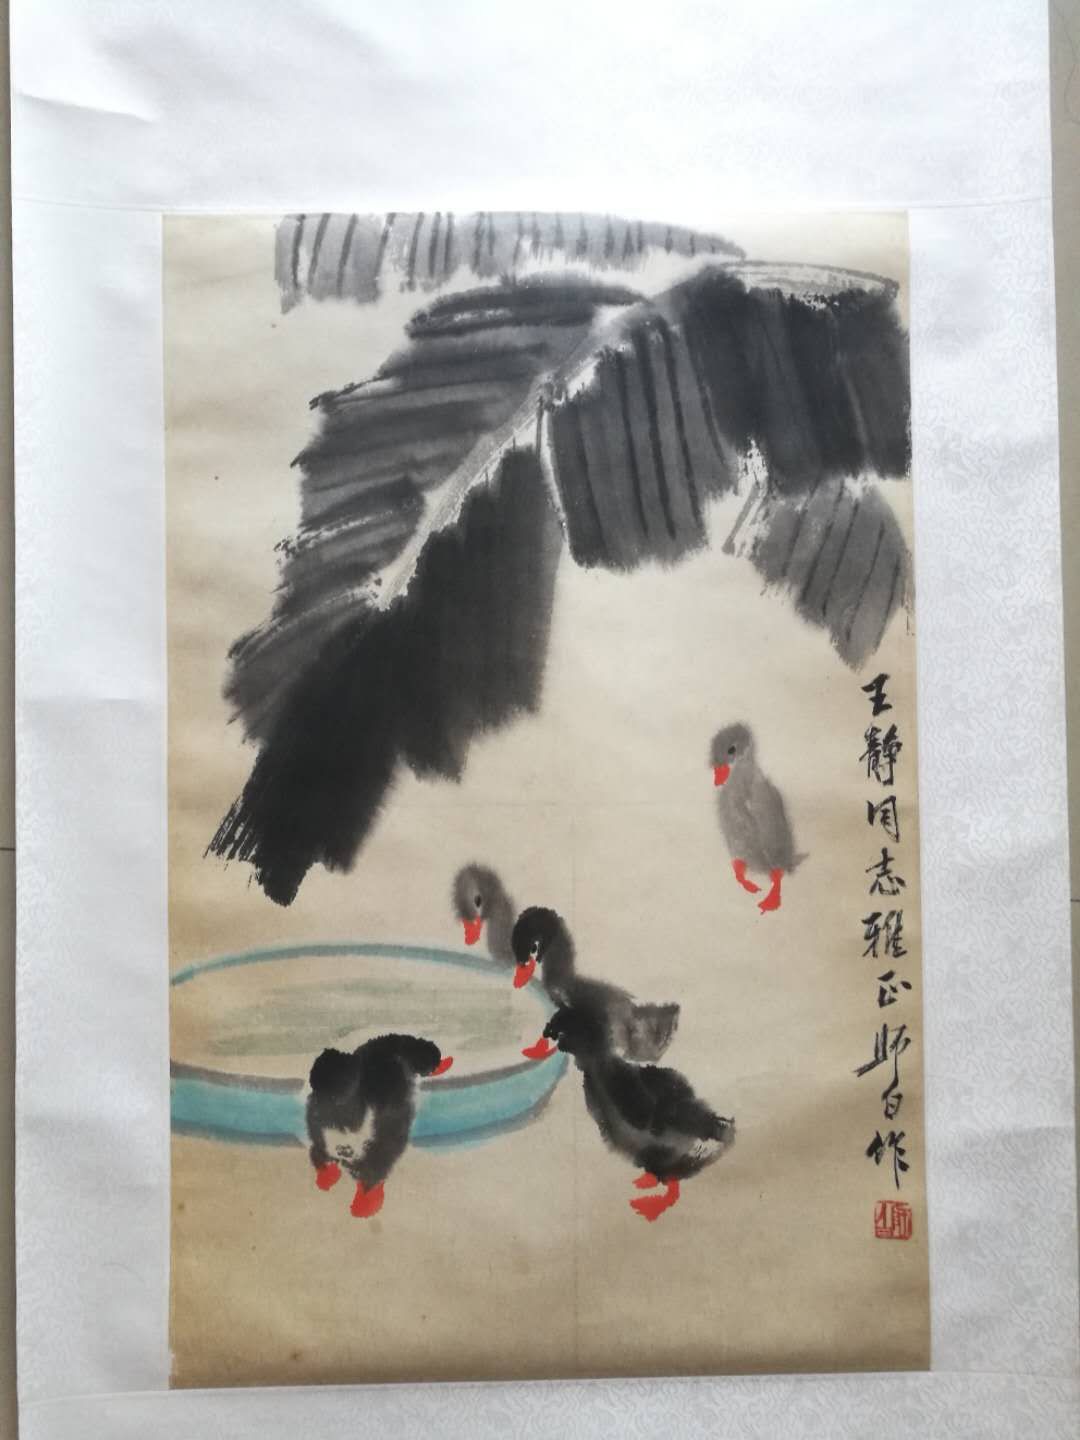 王静同志雅正师白作